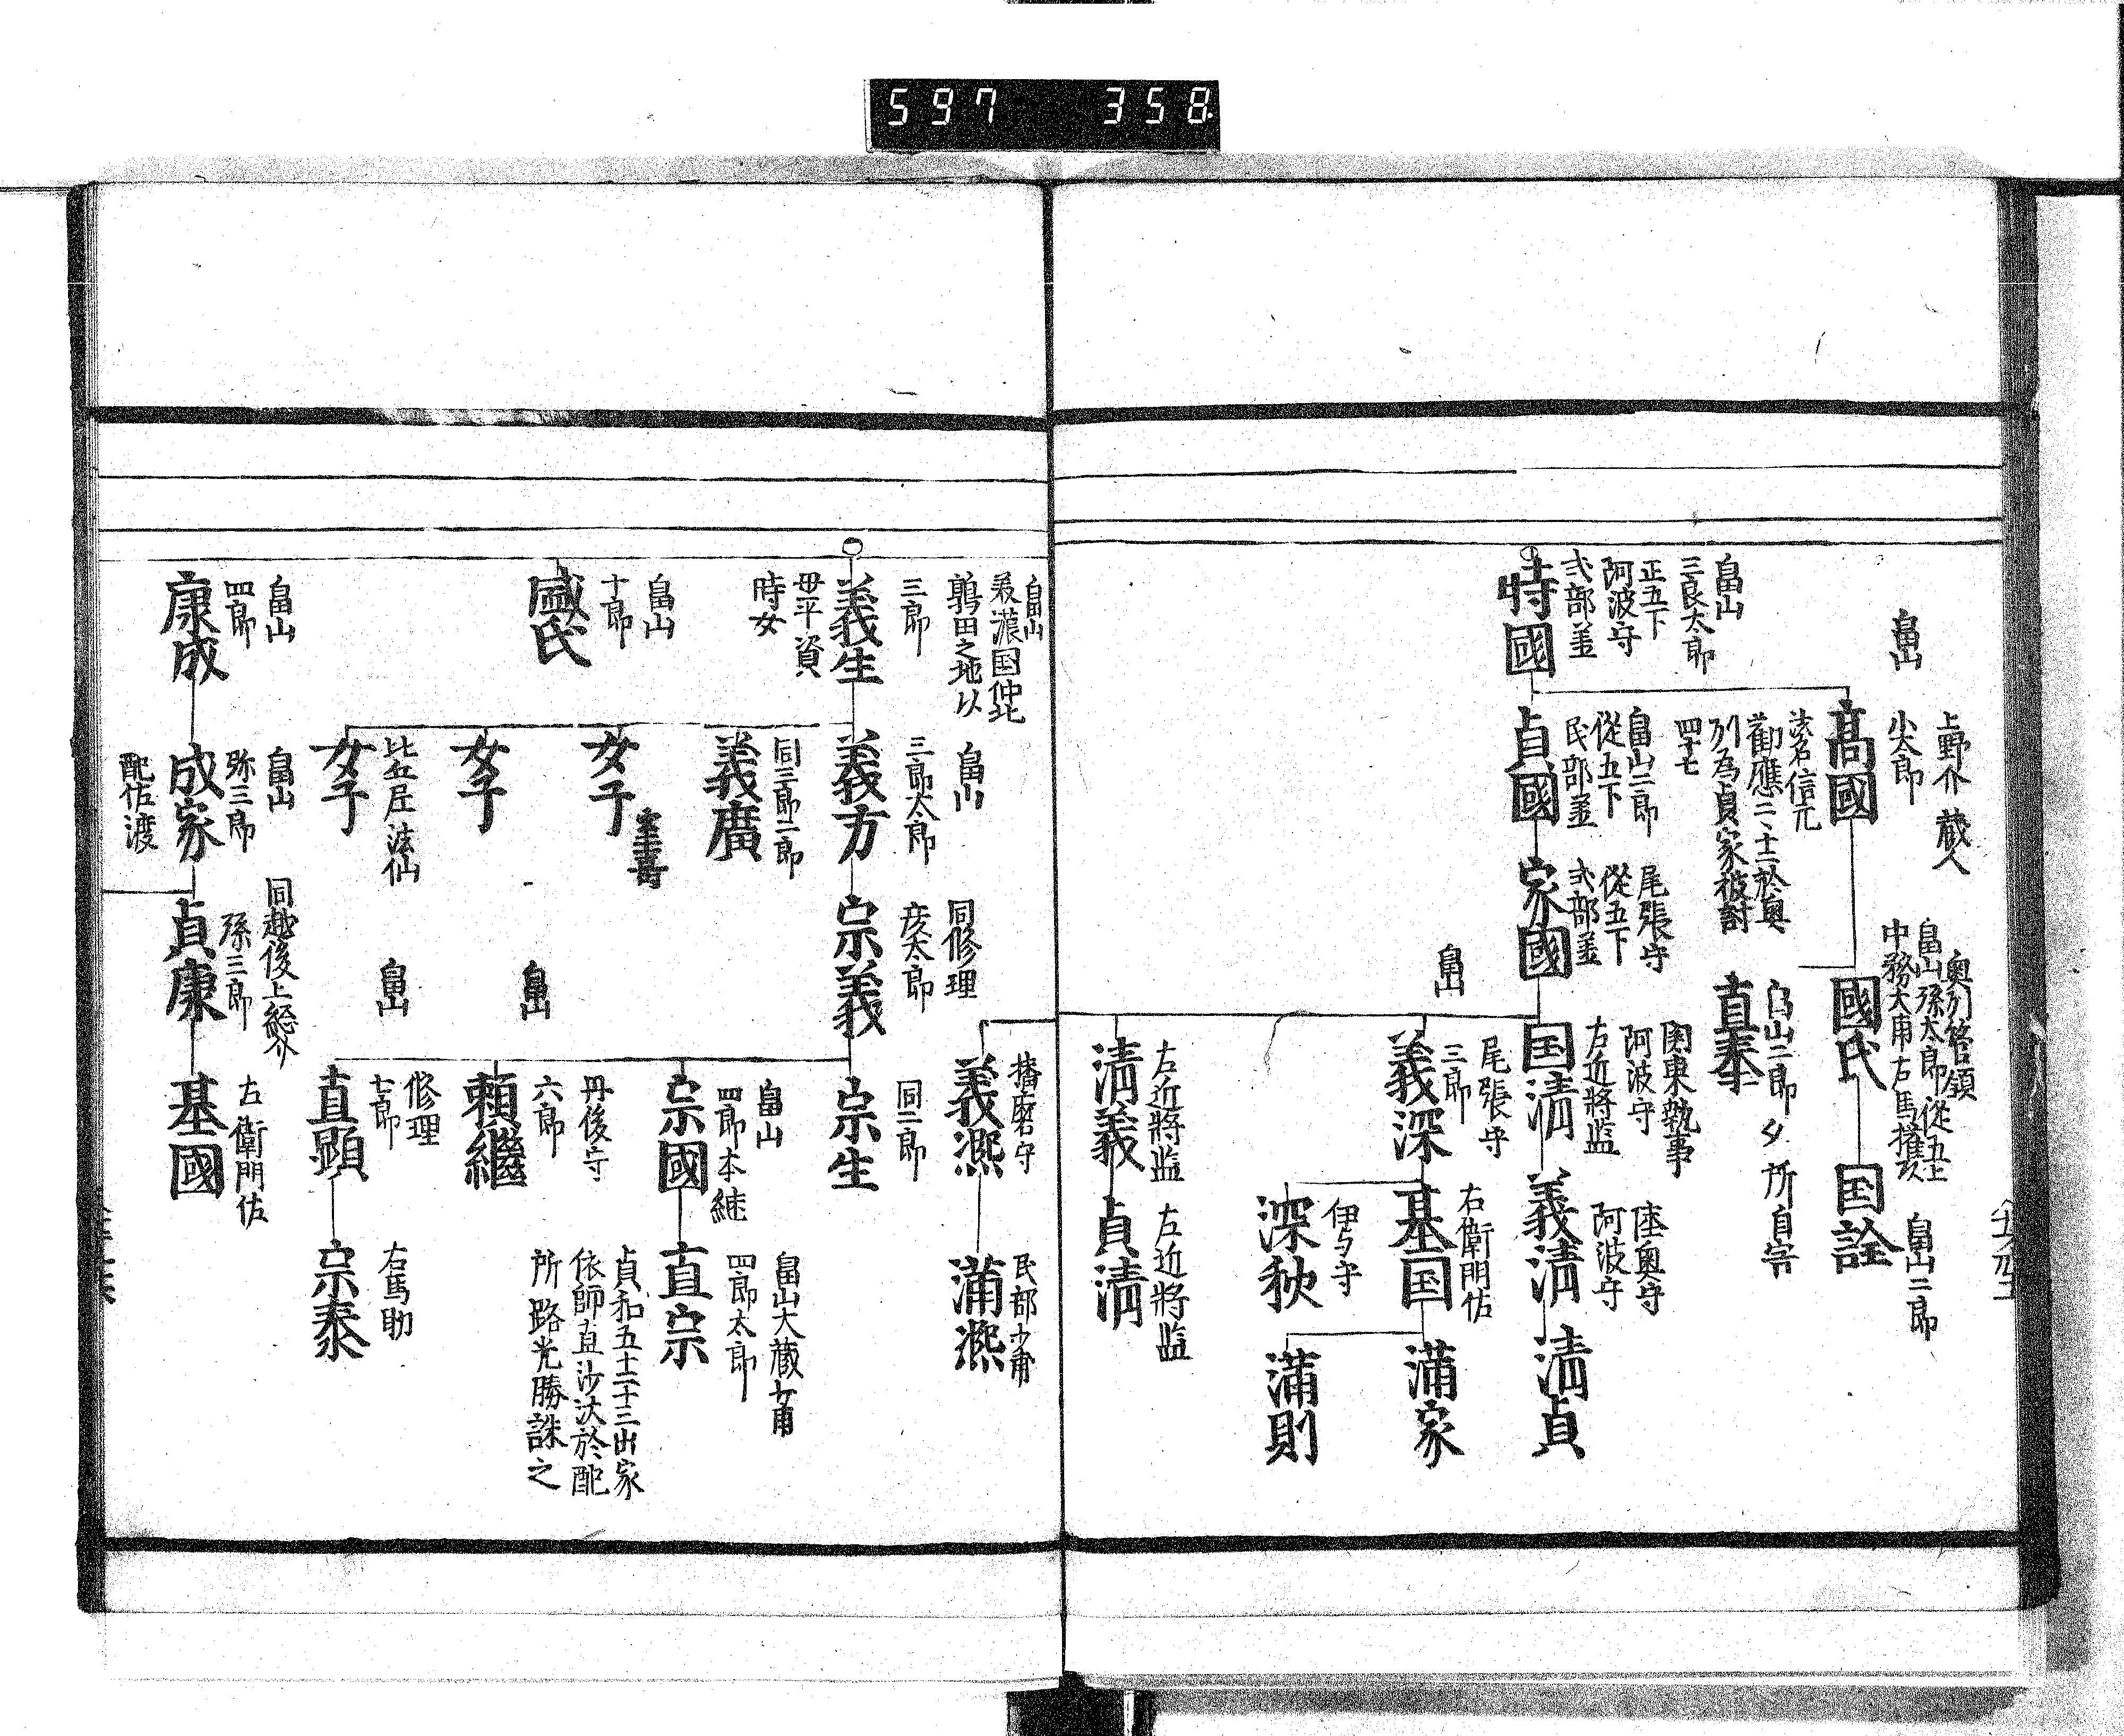 597 358
畠山
上野介 蔵人
尖太郎
高國
法名信元
観應二二十二於奥
列為貞家被討
四十七
奥列管領
畠山孫太郎從五上
中務大甫右馬權頭
國氏
畠山二郎
国詮
畠山二郎
直奉
畠山
三良太郎
正五下
阿波守
式部丞
時國
畠山二郎
從五下
民部丞
貞國
尾張守
從五下
式部丞
家國
関東執事
阿波守
左近將監
国清
陸奥守
阿波守
義清
清貞
畠山
尾張守
三郎
義深
右衛門佐
基国
滿家
伊与守
深秋
滿則
左近將監
清義
左近將監
貞清
播磨守
義凞
民部少甫
滿凞
畠山
美濃国仲北
鶉田之地以
三郎
義生
母平資
時女
畠山
三郎太郎
義方
同修理
彦太郎
宗義
同二郎
宗生
同三郎二郎
義廣
女子
女子
比丘尼法仙
女子
畠山
四郎本継
宗國
畠山大蔵少甫
四郎太郎
直宗
貞和五十二十三出家
依師直沙汰於配
所路光勝誅之
畠山
丹後守
六郎
頼繼
畠山
修理
七郎
直顕
右馬助
宗泰
畠山
十郎
國氏
畠山
四郎
康成
畠山
弥三郎
成家
配佐渡
同越後上総介
孫三郎
貞康
左衛門佐
基國